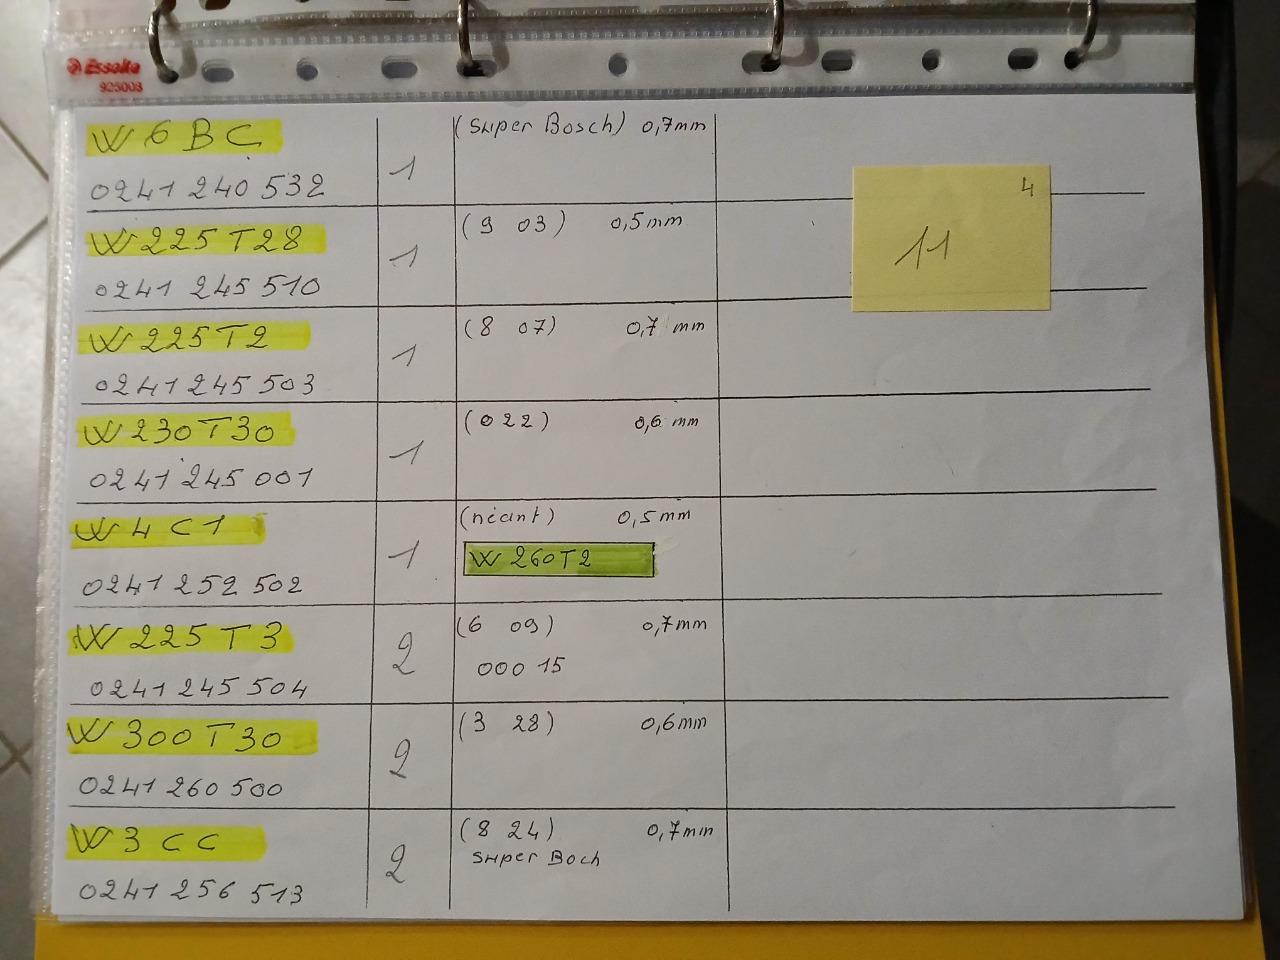 Esselte
925003
W 6 B C
0241 240 532
1
(Super Bosch) 0,7mm
4
11
W 225 T 28
0241 245 510
1
(9 03) 0,5mm
W 225 T 2
0241 245 503
1
(8 07) 0,7 mm
W 230 T 30
0241 245 001
1
(022) 0,6 mm
W 4 C 1
0241 252 502
1
(néant) 0,5mm
W 260T2
W 225 T 3
0241 245 504
2
(6 09) 0,7mm
000 15
W 300 T 30
0241 260 500
2
(3 28) 0,6mm
W 3 C C
0241 256 513
2
(8 24) 0,7mm
Super Boch